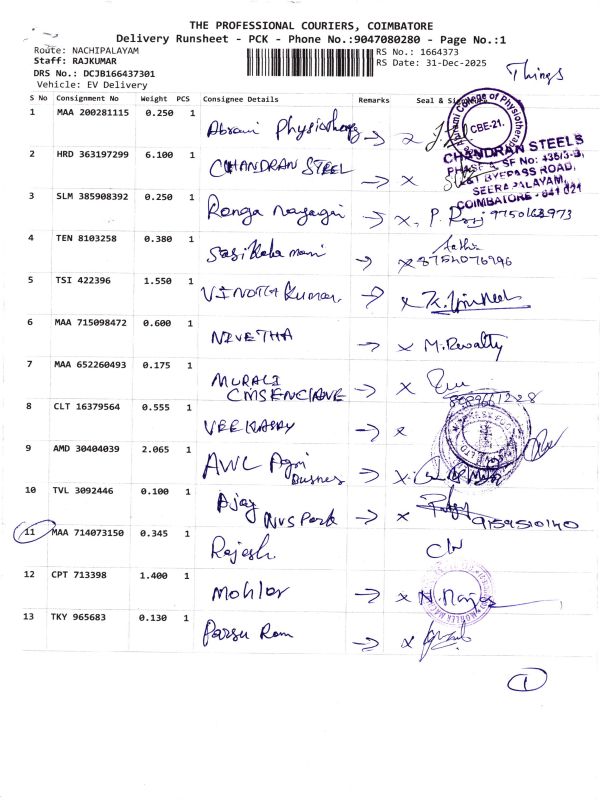 THE PROFESSIONAL COURIERS, COIMBATORE
Delivery Runsheet - PCK - Phone No.:9047080280 - Page No.:1
Route: NACHIPALAYAM RS No.: 1664373
Staff: RAJKUMAR RS Date: 31-Dec-2025
DRS No.: DCJB166437301
Vehicle: EV Delivery
Things
S No Consignment No Weight PCS Consignee Details Remarks Seal &
1 MAA 200281115 0.250 1 Abrami Physiotherapy
College of Physiotherapy
CBE-21.
2 HRD 363197299 6.100 1 CHANDRAN STEEL x
CHANDRAN STEELS
SF No: 435/3-B,
BYEPASS ROAD,
SEERAPALAYAM,
COIMBATORE - 641 021
3 SLM 385908392 0.250 1 Ranga nayagi x
4 TEN 8103258 0.380 1 Sasikala mani x
8754076996
5 TSI 422396 1.550 1 VINOTH Kumar. x
6 MAA 715098472 0.600 1 NIVETHA x M.Revathy
7 MAA 652260493 0.175 1 MURALI x
CMS ENCLAVE
8 CLT 16379564 0.555 1 x
9 AMD 30404039 2.065 1 AWL Agri x
Business
10 TVL 3092446 0.100 1 Ajay x
NVS Park 9159510140
11 MAA 714073150 0.345 1 Rajesh.
12 CPT 713398 1.400 1 Mohler x
13 TKY 965683 0.130 1 Parsu Ram x
1